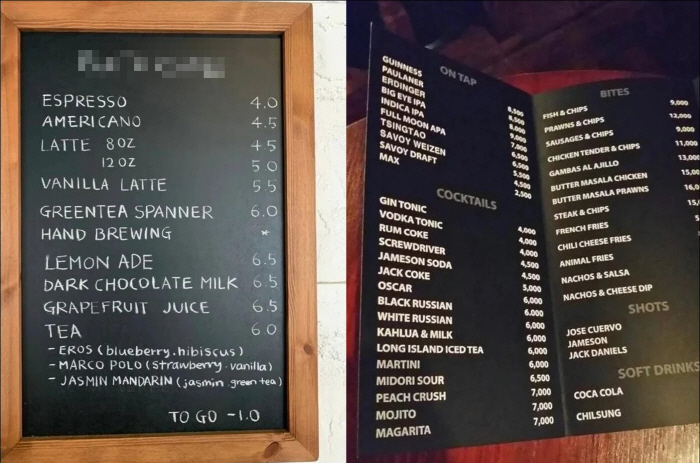 ESPRESSO 4.0
AMERICANO 4.5
LATTE 8OZ 4 5
12OZ 5 0
VANILLA LATTE 5 5
GREENTEA SPANNER 6.0
HAND BREWING *
LEMON ADE 6.5
DARK CHOCOLATE MILK 6.5
GRAPEFRUIT JUICE 6.5
TEA 6.0
- EROS (blueberry.hibiscus)
- MARCO POLO (strawberry.vanilla)
- JASMIN MANDARIN (jasmin green tea)
TO GO -1.0
ON TAP
GUINNESS 8,500
PAULANER 8,500
ERDINGER 8,000
BIG EYE IPA 9,000
INDICA IPA 7,000
FULL MOON APA 6,500
TSINGTAO 6,500
SAVOY WEIZEN 5,500
SAVOY DRAFT 4,500
MAX 2,500
COCKTAILS
GIN TONIC
VODKA TONIC 4,000
RUM COKE 4,000
SCREWDRIVER 4,000
JAMESON SODA 4,500
JACK COKE 4,500
OSCAR 5,000
BLACK RUSSIAN 6,000
WHITE RUSSIAN 6,000
KAHLUA & MILK 6,000
LONG ISLAND ICED TEA 6,000
MARTINI 6,000
MIDORI SOUR 6,500
PEACH CRUSH 7,000
MOJITO 7,000
MAGARITA 7,000
BITES
FISH & CHIPS 9,000
PRAWNS & CHIPS 12,000
SAUSAGES & CHIPS 9,000
CHICKEN TENDER & CHIPS 11,000
GAMBAS AL AJILLO 13,000
BUTTER MASALA CHICKEN
BUTTER MASALA PRAWNS
STEAK & CHIPS
FRENCH FRIES
CHILI CHEESE FRIES
ANIMAL FRIES
NACHOS & SALSA
NACHOS & CHEESE DIP
SHOTS
JOSE CUERVO
JAMESON
JACK DANIELS
SOFT DRINKS
COCA COLA
CHILSUNG